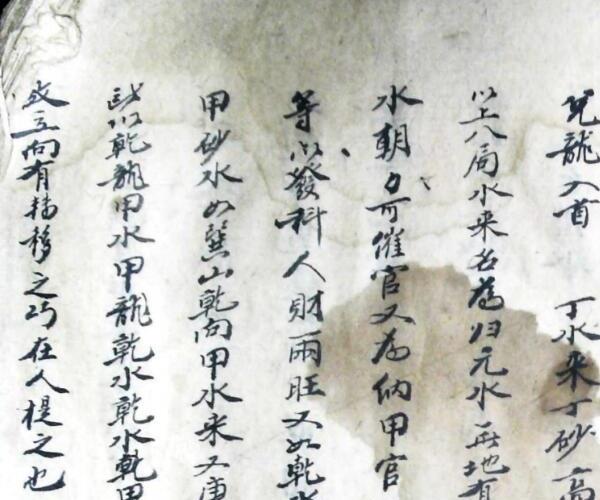 兌龍入首　丁水来丁砂高
以上八局水来名為归元水再地有
水朝可催官又為纳甲官
等以發科人財兩旺又如乾水
甲砂水如巽山乾向甲水来又庚
以乾龍甲水甲龍乾水乾水乾甲
或立向有轉移之巧在人提之也